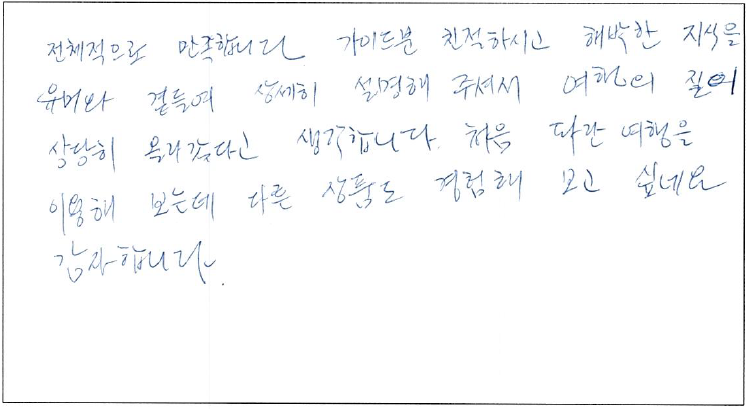 전체적으로 만족합니다. 가이드분 친절하시고 해박한 지식을
유머와 곁들여 상세히 설명해 주셔서 여행의 질이
상당히 올라갔다고 생각합니다. 처음 파란 여행을
이용해 보는데 다른 상품도 경험해 보고 싶네요
감사합니다.